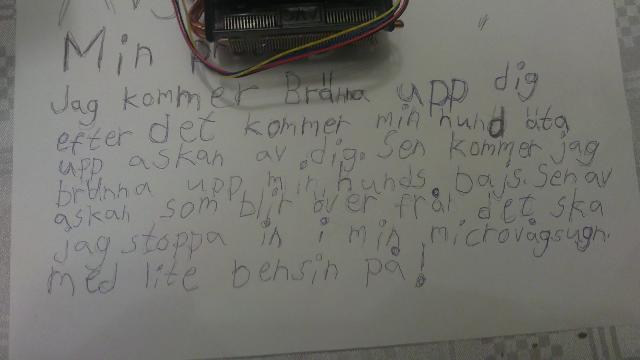 Min
Jag kommer Bränna upp dig
efter det kommer min hund äta
upp askan av dig. Sen kommer jag
bränna upp min hunds bajs. Sen av
askan som blir över från det ska
jag stoppa in i min microvågsugn.
med lite bensin på!